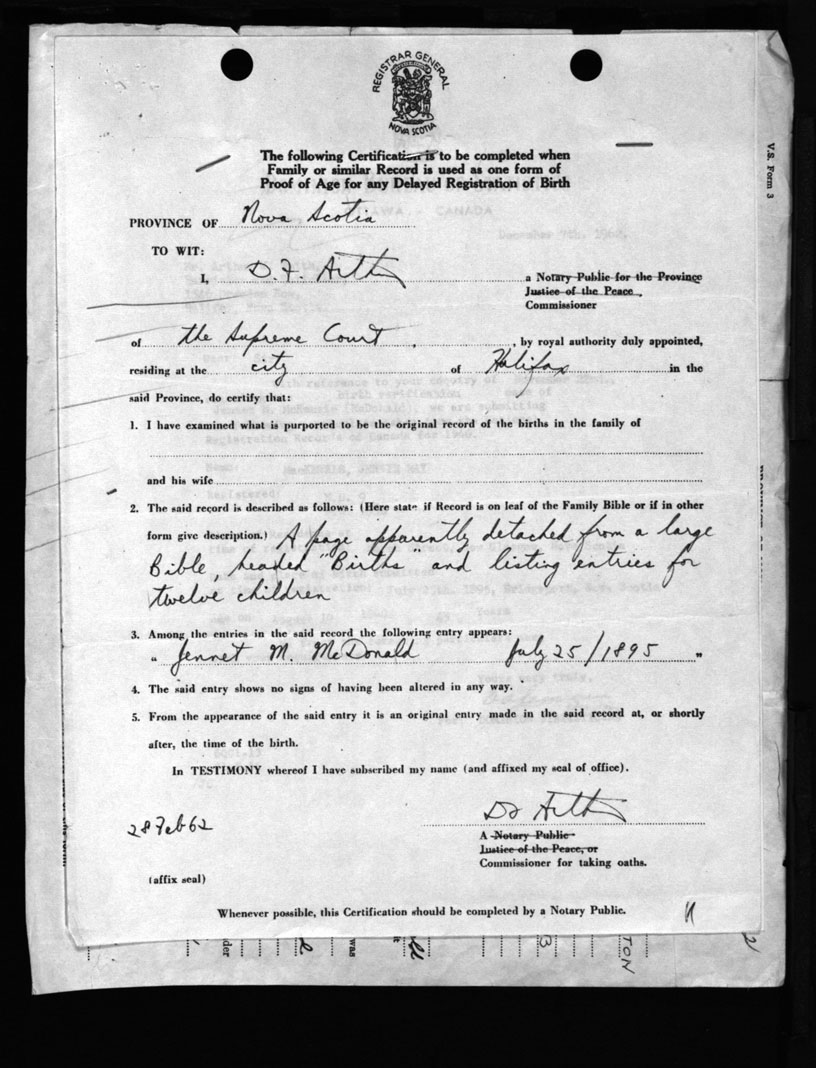 REGISTRAR GENERAL
NOVA SCOTIA
The following Certification is to be completed when
Family or similar Record is used as one form of
Proof of Age for any Delayed Registration of Birth
V.S. Form 3
PROVINCE OF Nova Scotia
TO WIT:
I, D. F.
a Notary Public for the Province
Justice of the Peace,
Commissioner
of the Supreme Court, by royal authority duly appointed,
residing at the city of Halifax in the
said Province, do certify that:
1. I have examined what is purported to be the original record of the births in the family of
and his wife
2. The said record is described as follows: (Here state if Record is on leaf of the Family Bible or if in other
form give description.) A page apparently detached from a large
Bible, headed "Births" and listing entries for
twelve children
3. Among the entries in the said record the following entry appears:
" Jennet M. McDonald July 25/1895 "
4. The said entry shows no signs of having been altered in any way.
5. From the appearance of the said entry it is an original entry made in the said record at, or shortly
after, the time of the birth.
In TESTIMONY whereof I have subscribed my name (and affixed my seal of office).
28 Feb 62
A Notary Public
Justice of the Peace, or
Commissioner for taking oaths.
(affix seal)
Whenever possible, this Certification should be completed by a Notary Public.